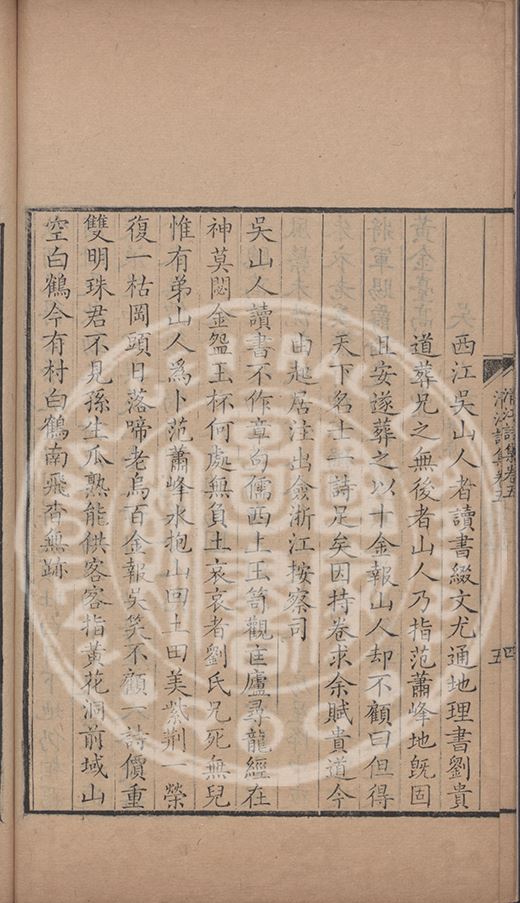 西江吳山人者讀書綴文尤通地理書劉貴
道葬兄之無後者山人乃指范蕭峰地旣固
且安遂葬之以十金報山人却不顧曰但得
天下名士一詩足矣因持卷求余賦貴道今
由起居注出僉浙江按察司
吳山人讀書不作章句儒西上玉笥觀匡廬尋龍經在
神莫悶金盌玉杯何處無負土哀哀者劉氏兄死無兒
惟有弟山人爲卜范蕭峰水抱山回土田美紫荆一榮
復一枯岡頭日落啼老烏百金報吳笑不顧一詩價重
雙明珠君不見孫生瓜熟能供客客指黃花洞前域山
空白鶴今有村白鶴南飛杳無跡